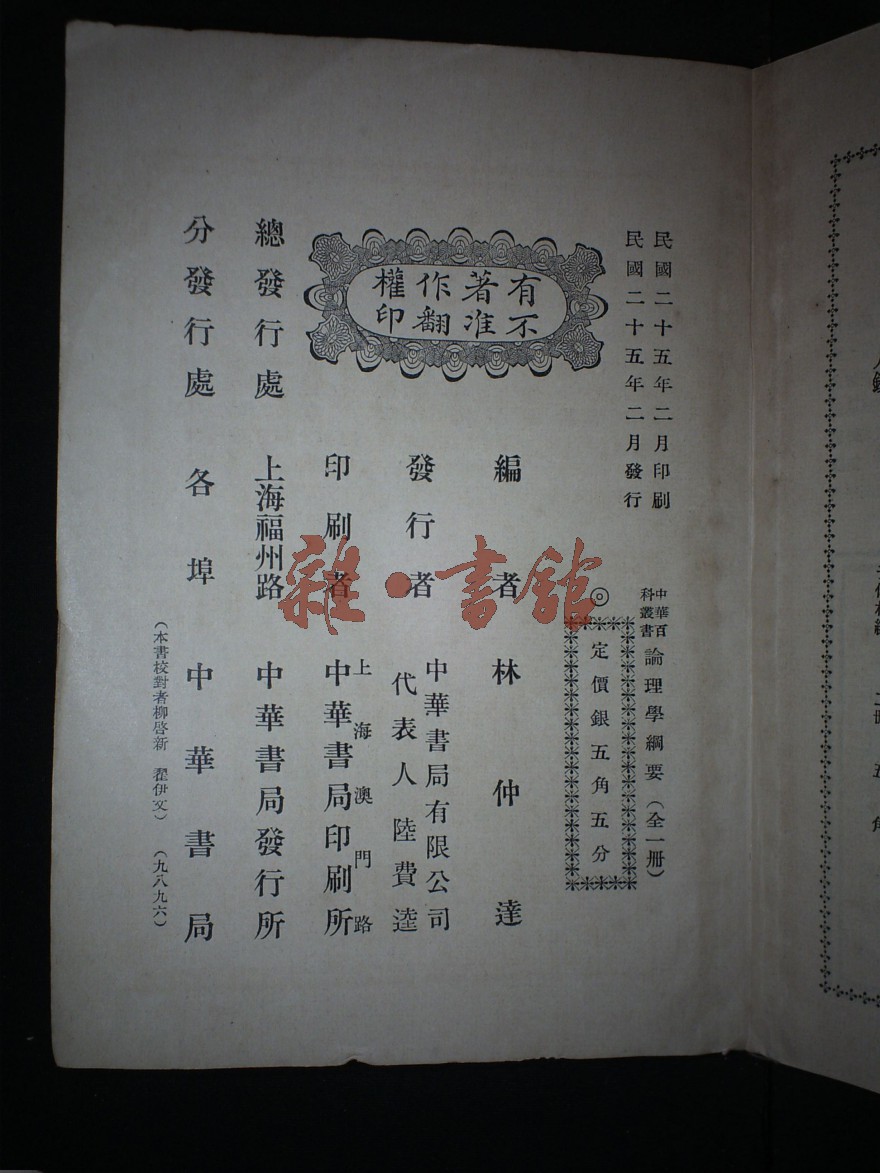 民國二十五年二月印刷
民國二十五年二月發行
中華百科叢書
論理學綱要（全一册）
◎定價銀五角五分
有著作權
不准翻印
編者 林仲達
發行者 中華書局有限公司
代表人 陸費逵
印刷者 上海澳門路
中華書局印刷所
總發行處 上海福州路 中華書局發行所
分發行處 各埠 中華書局
（本書校對者柳啓新 翟伊文）（九八九六）
雜·書館